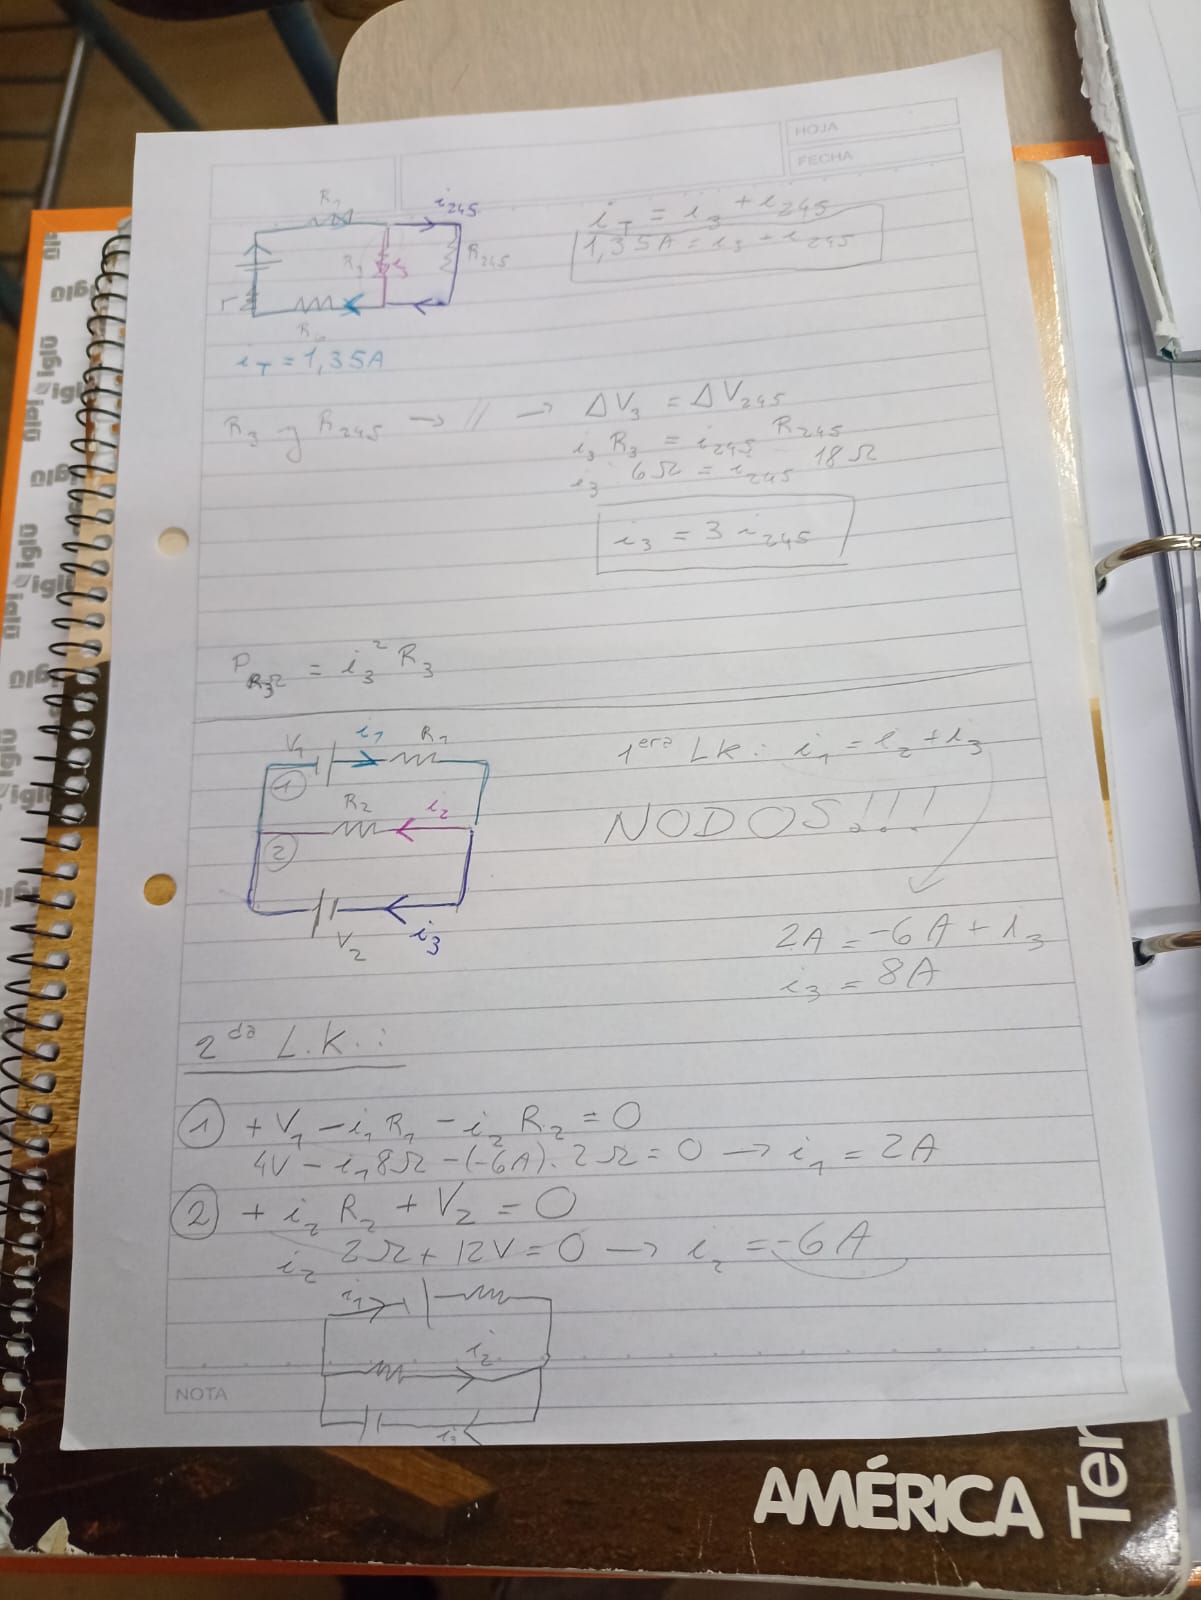 HOJA
FECHA
R₁
i₂₄₅
R₃ i₃
R₂₄₅
r
R₆
i_T = 1,35A
i_T = i₃ + i₂₄₅
1,35A = i₃ + i₂₄₅
R₃ y R₂₄₅ → // → ΔV₃ = ΔV₂₄₅
i₃ R₃ = i₂₄₅ R₂₄₅
i₃ 6Ω = i₂₄₅ 18Ω
i₃ = 3 i₂₄₅
P_R₃ = i₃² R₃
V₁ i₁ R₁
1
R₂ i₂
2
V₂ i₃
1era LK: i₁ = i₂ + i₃
NODOS!!!
2A = -6A + i₃
i₃ = 8A
2da L.K.:
① + V₁ - i₁ R₁ - i₂ R₂ = 0
4V - i₁ 8Ω - (-6A). 2Ω = 0 → i₁ = 2A
② + i₂ R₂ + V₂ = 0
i₂ 2Ω + 12V = 0 → i₂ = -6A
i₁
i₂
i₃
NOTA
AMÉRICA
Ter
iglü